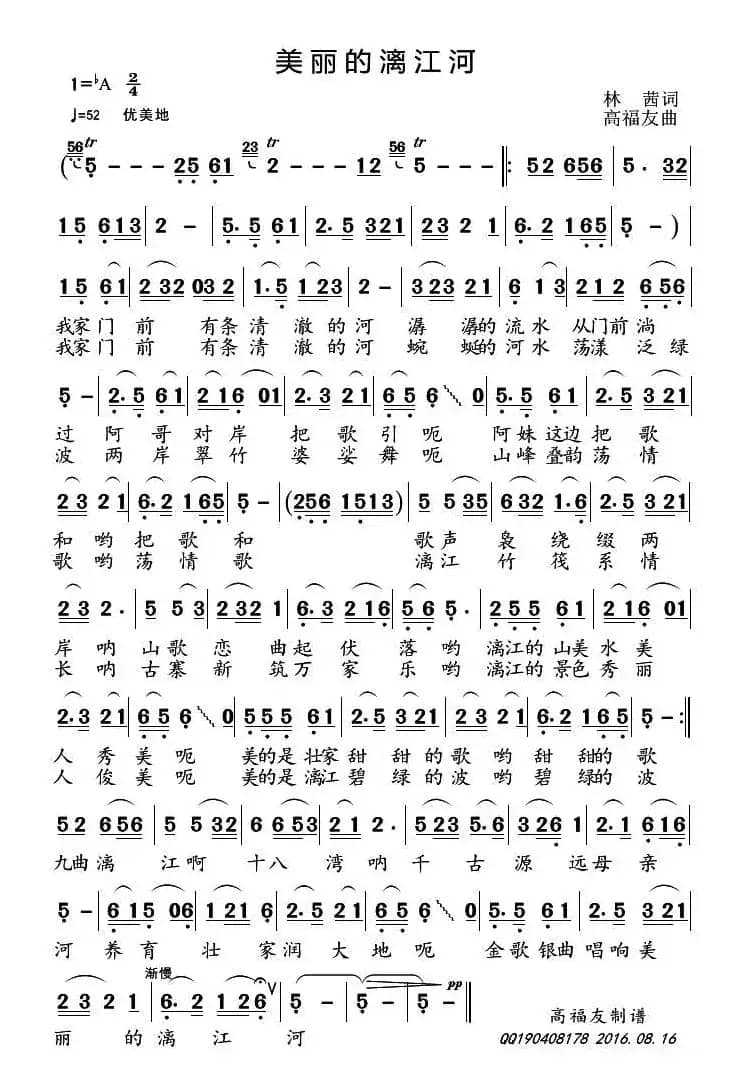 美丽的漓江河
1=♭A 2/4
♩=52 优美地
林 茜词
高福友曲
(56 tr 5 - - - 25 61 23 tr 2 - - - 12 56 tr 5 - - - ‖: 52 656 | 5. 32 |
15 613 | 2 - | 5.5 61 | 2.5 321 | 23 2 1 | 6.2 165 | 5 - ) |
15 61 | 2 32 03 2 | 1.5 1 23 | 2 - | 3 23 21 | 6 1 3 | 21 2 6 5 6 |
我家门前 有条清澈的河 潺潺的流水从门前淌
我家门前 有条清澈的河 蜿蜒的河水荡漾泛绿
5 - | 2.5 61 | 2 16 01 | 2.3 21 | 6 5 6 0 | 5.5 61 | 2.5 3 21 |
过阿哥对岸把歌引呃 阿妹这边把歌
波两岸翠竹婆娑舞呃 山峰叠韵荡情
2 3 2 1 | 6.2 1 65 | 5 - | (256 1513) | 5 5 35 | 6 32 1.6 | 2.5 3 21 |
和哟把歌和 歌声袅绕缀两
歌哟荡情歌 漓江竹筏系情
2 3 2. | 5 5 53 | 2 32 2 1 | 6.3 2 16 | 5 6 5. | 2 5 5 61 | 2 16 01 |
岸呐山歌恋曲起伏落哟漓江的山美水美
长呐古寨新筑万家乐哟漓江的景色秀丽
2.3 21 | 6 5 6 0 | 5 5 5 61 | 2.5 3 21 | 2 3 2 1 | 6.2 1 65 | 5 - :‖
人秀美呃 美的是壮家甜甜的歌哟甜甜的歌
人俊美呃 美的是漓江碧绿的波哟碧绿的波
52 656 | 5 5 32 | 6 6 53 | 2 1 2 | 5 23 5.6 | 3 26 1 | 2.3 6 16 |
九曲漓江啊十八湾呐千古源远母亲
5 - | 6 15 06 | 1 21 6 | 2.5 3 21 | 6 5 6 0 | 5.5 61 | 2.5 321 |
河养育壮家润大地呃 金歌银曲唱响美
渐慢
2 3 2 1 | 6.2 1 2 6 ∨ | 5 - | 5 - | 5 - pp ‖
丽的漓江河
高福友制谱
QQ190408178 2016.08.16